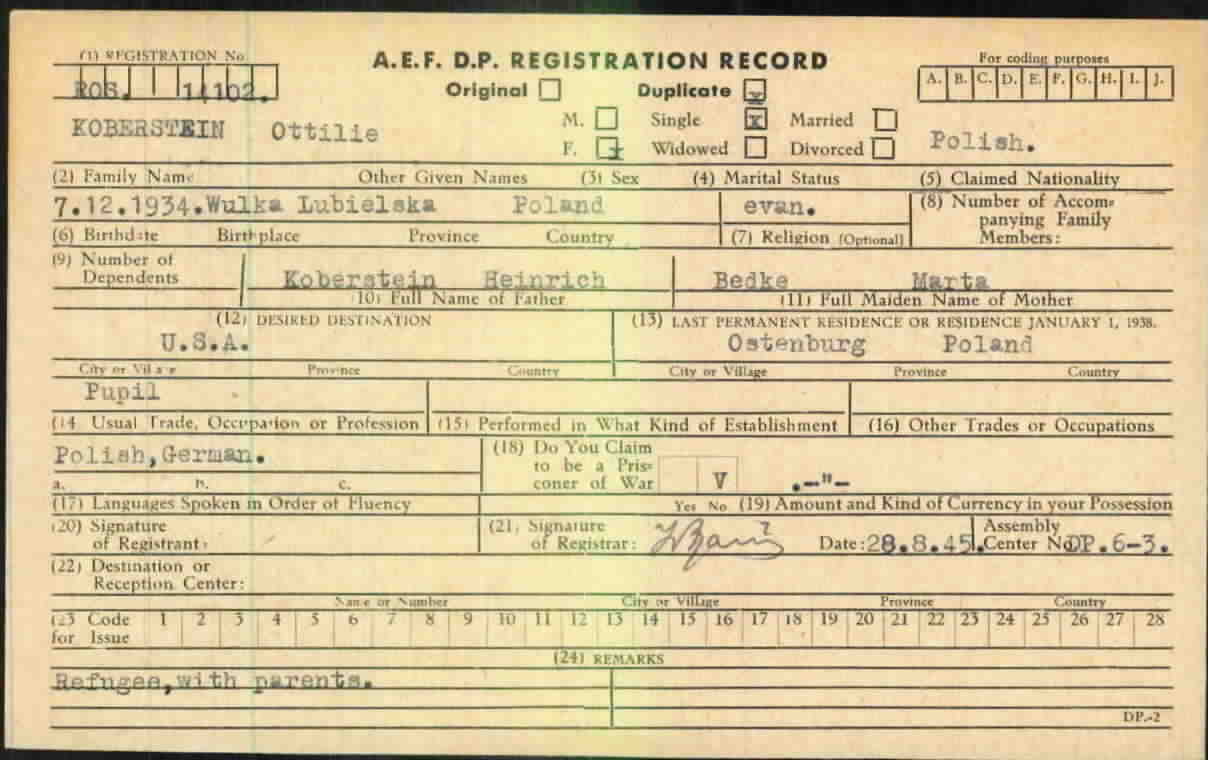 (1) REGISTRATION No.
A.E.F. D.P. REGISTRATION RECORD
For coding purposes
ROS. 14102.
Original Duplicate x
A. B. C. D. E. F. G. H. I. J.
KOBERSTEIN Ottilie
M. Single x Married
F. x Widowed Divorced
Polish.
(2) Family Name Other Given Names (3) Sex (4) Marital Status (5) Claimed Nationality
7.12.1934. Wulka Lubielska Poland evan.
(8) Number of Accompanying Family Members:
(6) Birthdate Birthplace Province Country (7) Religion (Optional)
(9) Number of Dependents
Koberstein Heinrich Bedke Marta
(10) Full Name of Father (11) Full Maiden Name of Mother
(12) DESIRED DESTINATION (13) LAST PERMANENT RESIDENCE OR RESIDENCE JANUARY 1, 1938.
U.S.A. Ostenburg Poland
City or Village Province Country City or Village Province Country
Pupil
(14 Usual Trade, Occupation or Profession (15) Performed in What Kind of Establishment (16) Other Trades or Occupations
Polish, German.
(18) Do You Claim
to be a Pris-
oner of War V .-"-
a. b. c.
(17) Languages Spoken in Order of Fluency Yes No (19) Amount and Kind of Currency in your Possession
(20) Signature
of Registrant:
(21) Signature
of Registrar: Date: 28.8.45. Assembly
Center No. DP.6-3.
(22) Destination or
Reception Center:
Name or Number City or Village Province Country
(23 Code
for Issue 1 2 3 4 5 6 7 8 9 10 11 12 13 14 15 16 17 18 19 20 21 22 23 24 25 26 27 28
(24) REMARKS
Refugee, with parents.
DP.-2